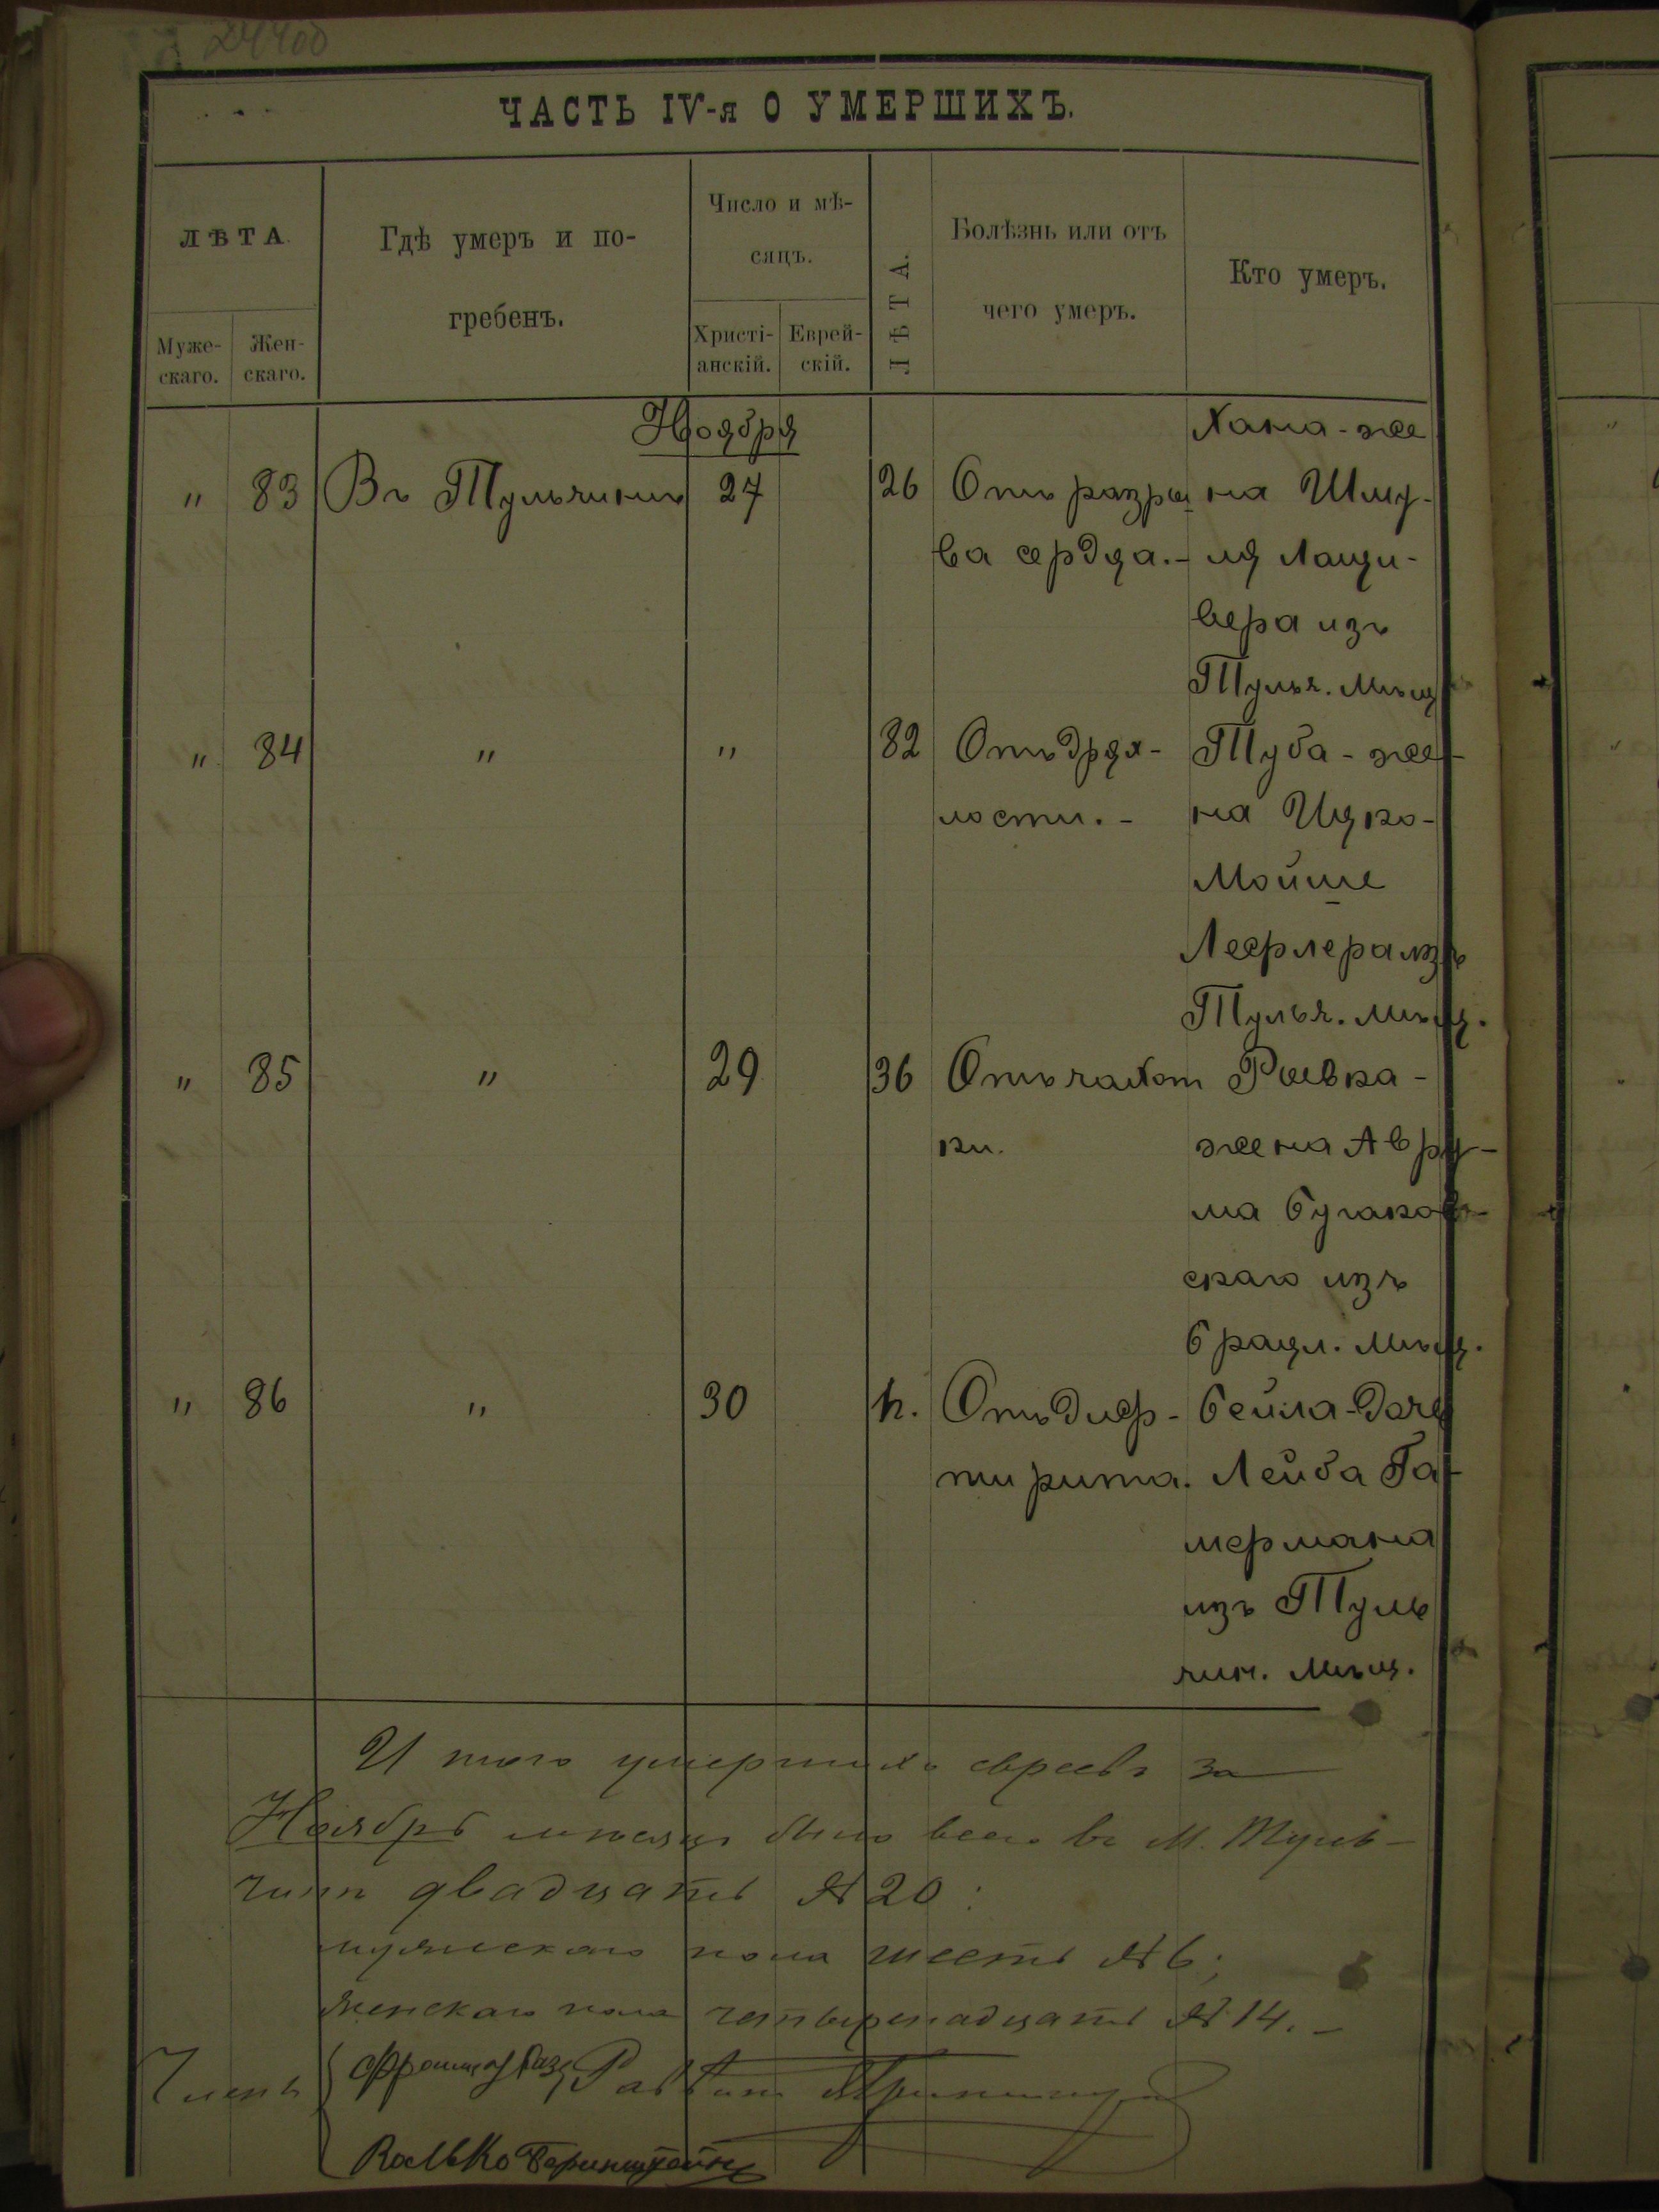 24400
ЧАСТЬ IV-я О УМЕРШИХЪ.
ЛѢТА
Муже-
скаго.
Жен-
скаго.
Гдѣ умеръ и по-
гребенъ.
Число и мѣ-
сяцъ.
Христі-
анскій.
Еврей-
скій.
ЛѢТА.
Болѣзнь или отъ
чего умеръ.
Кто умеръ.
Ноября Хана-же
" 83 Въ Тульчинѣ 27 26 Отъ разры на Шму-
ва сердца.- ля Лащи-
вера изъ
Тульч. Мѣщ
" 84 " " 82 Отъ дрях- Туба-же-
лости.- на Ицко-
Мойше
Лефлера изъ
Тульч. мѣщ.
" 85 " 29 36 Отъ чахот Ривка-
ки. жена Авру-
ма Бугаков-
скаго изъ
Брацл. Мѣщ.
" 86 " 30 Отъ диф- Бейла-дочь
тирита. Лейба Га-
мермана
изъ Туль
чин. Мѣщ.
Итого умершихъ евреевъ за
Ноябрь мѣсяцъ было всего въ М. Туль-
чинѣ двадцать № 20:
мужескаго пола шесть № 6;
женскаго пола четырнадцать № 14.-
Члены Раввинъ